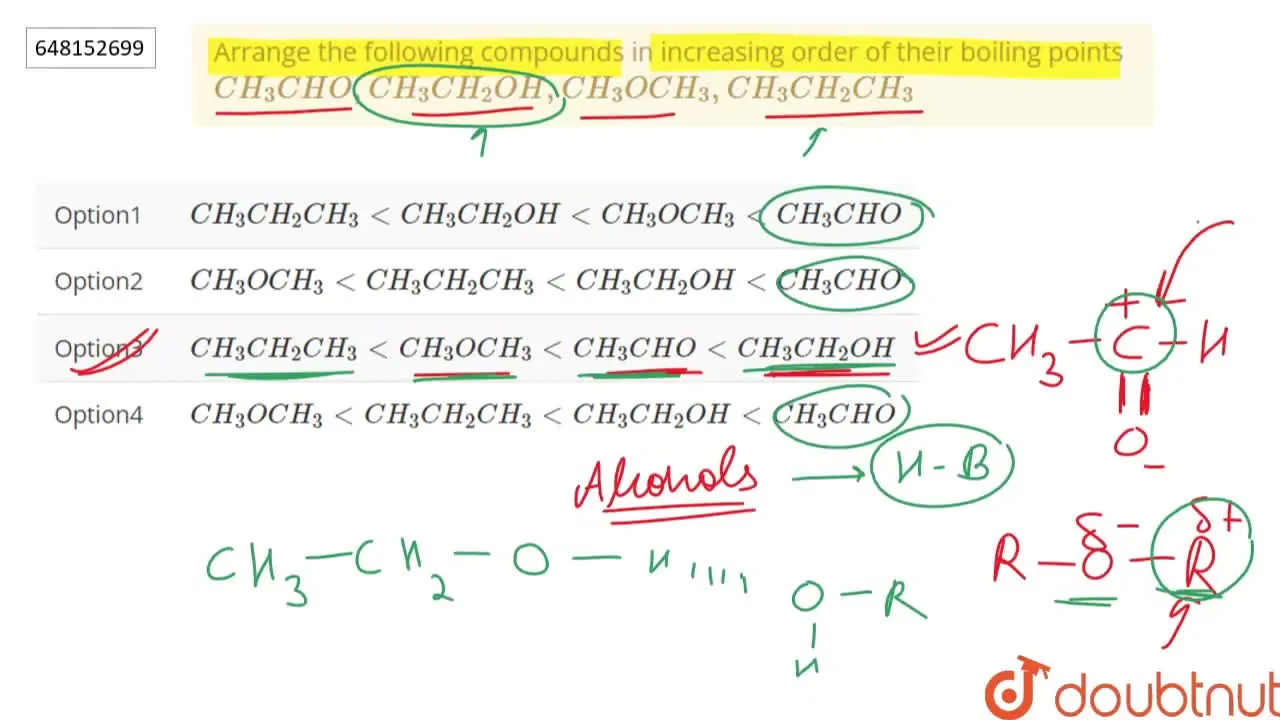 648152699
Arrange the following compounds in increasing order of their boiling points
CH₃CHO, CH₃CH₂OH, CH₃OCH₃, CH₃CH₂CH₃
Option1 CH₃CH₂CH₃ < CH₃CH₂OH < CH₃OCH₃ < CH₃CHO
Option2 CH₃OCH₃ < CH₃CH₂CH₃ < CH₃CH₂OH < CH₃CHO
Option3 CH₃CH₂CH₃ < CH₃OCH₃ < CH₃CHO < CH₃CH₂OH
Option4 CH₃OCH₃ < CH₃CH₂CH₃ < CH₃CH₂OH < CH₃CHO
+
CH₃ — C — H
O
−
Alcohols → H-B
δ− δ+
R — O — R
CH₃ — CH₂ — O — H
O — R
H
doubtnut